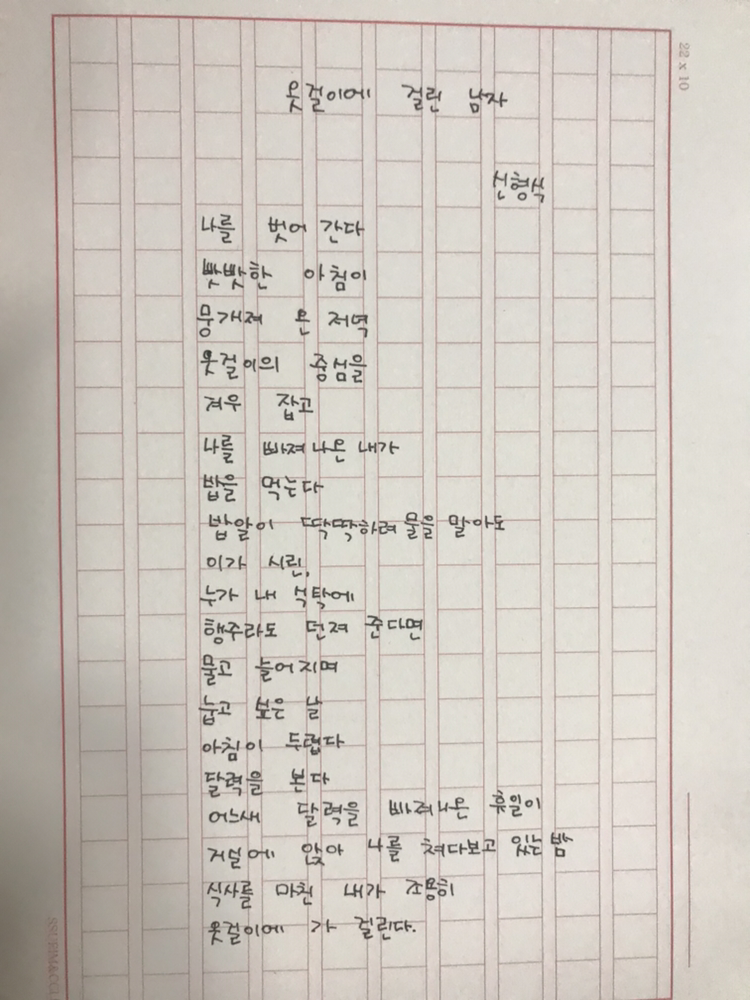 옷걸이에 걸린 남자
신형식
나를 벗어 간다
빳빳한 아침이
뭉개져 온 저녁
옷걸이의 중심을
겨우 잡고
나를 빠져나온 내가
밥을 먹는다
밥알이 딱딱하려 물을 말아도
이가 시린,
누가 내 식탁에
행주라도 던져 준다면
물고 늘어지며
눕고 싶은 날
아침이 두렵다
달력을 본다
어느새 달력을 빠져나온 휴일이
거실에 앉아 나를 쳐다보고 있는 밤
식사를 마친 내가 조용히
옷걸이에 가 걸린다.
22 x 10